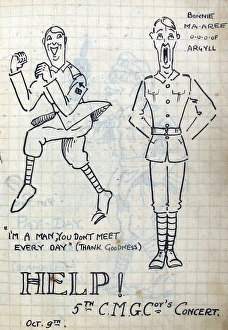 BONNIE
MA-AREE
O-O-O-OF
ARGYLL
"I'M A MAN, YOU DON'T MEET
EVERY DAY" (THANK GOODNESS)
HELP!
5TH C.M.G.COY'S CONCERT.
OCT. 9TH.